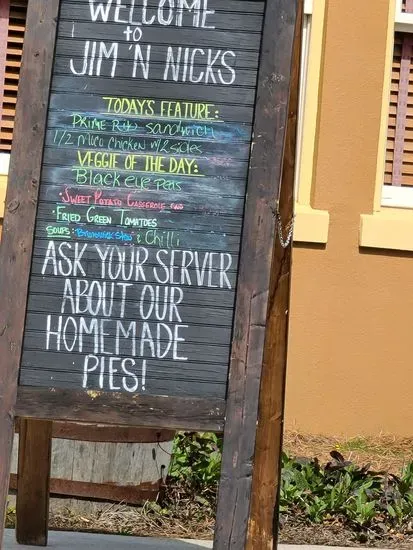 WELCOME
to
JIM 'N NICKS
TODAY'S FEATURE:
PRIME RIB SANDWICH
1/2 MOCO CHICKEN W/2 SIDES
VEGGIE OF THE DAY:
Black eye peas
• SWEET POTATO CASSEROLE
• FRIED GREEN TOMATOES
SOUPS: Brunswick Stew & Chilli
ASK YOUR SERVER
ABOUT OUR
HOMEMADE
PIES!